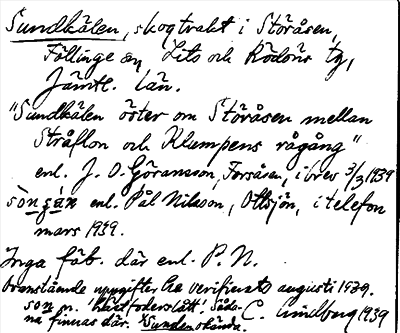 Sundkälen, skogtrakt i Störåsen,
Föllinge sn, Lits och Rödöns tg,
Jämtl. län.
"Sundkälen öster om Störåsen mellan
Stråflon och Klumpens rågång"
enl. J. O. Göransson, Forsåsen, i brev 3/3 1939
enl. Pål Nilsson, Ottsjön, i telefon
mars 1939.
Inga fäb. där enl. P. N.
Ovanstående uppgifter ha verifierats augusti 1939.
som m. Såda-
C. Lindborg 1939
na finnas där.